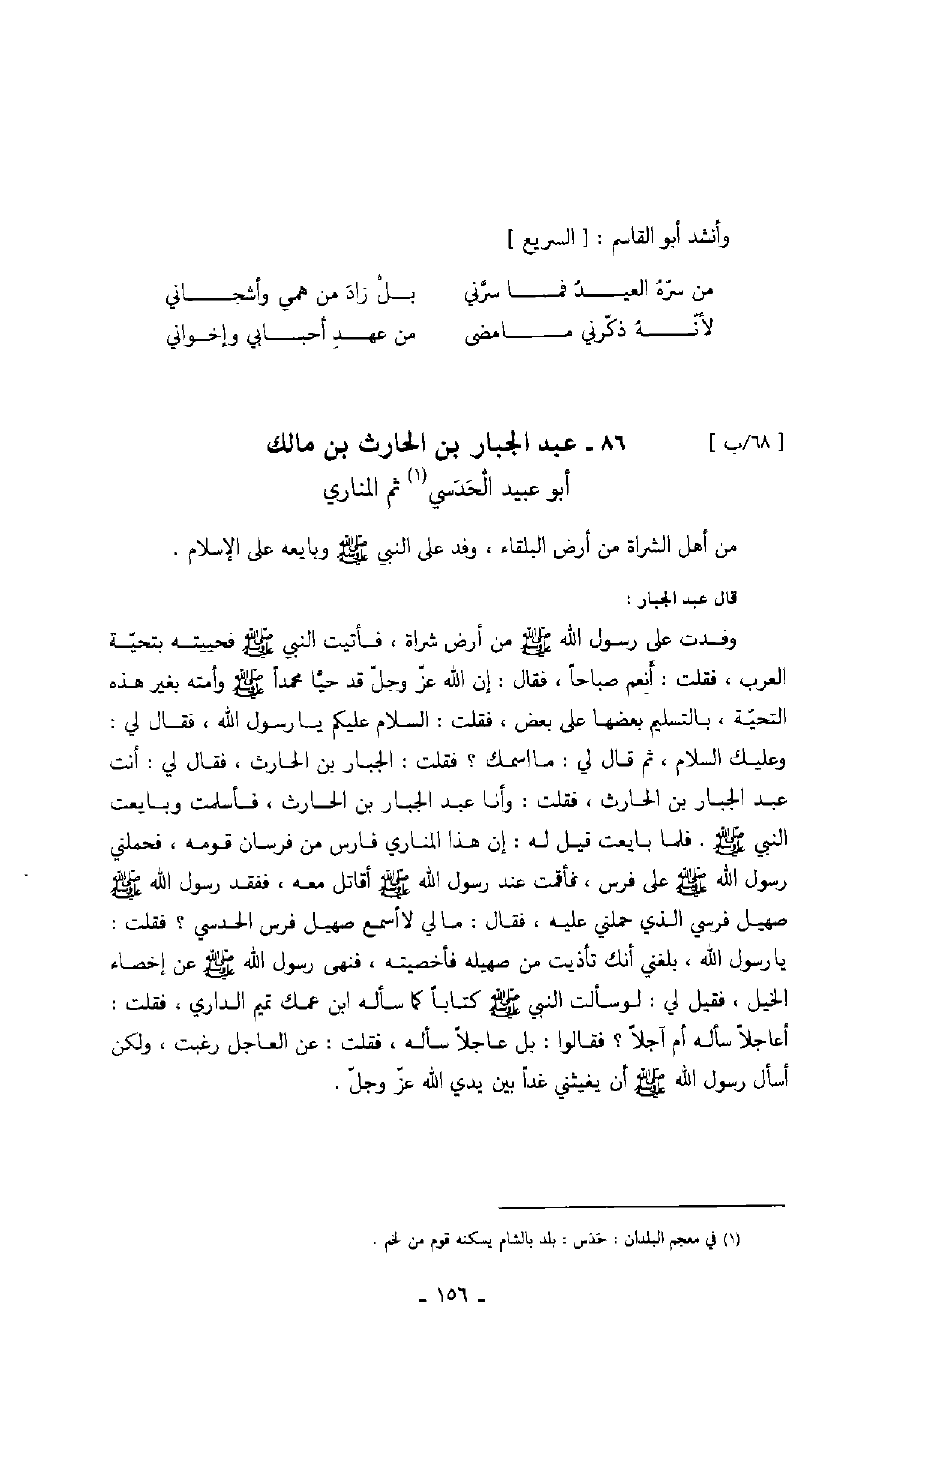 وأنشد أبو القاسم : [ السريع ]
من سرّهُ العيـــدُ فمـــا سرَّني بـــلْ زادَ من همي وأشجـــاني
لأنّـــهُ ذكّرني مـــامضى من عهـــدِ أحبـــابي وإخـواني
[ ٦٨/ب ] ٨٦ ـ عبد الجبار بن الحارث بن مالك
أبو عبيد الْحَدَسي(١) ثم المناري
من أهل الشراة من أرض البلقاء ، وفد على النبي ﷺ وبايعه على الإسلام .
قال عبد الجبار :
وفـدت على رسول الله ﷺ من أرض شراة ، فـأتيت النبي ﷺ فحييتـه بتحيّـة
العرب ، فقلت : أَنعِم صباحاً ، فقال : إن الله عزّ وجلّ قد حيّا محمداً ﷺ وأمته بغير هـذه
التحيّـة ، بـالتسليم بعضهـا على بعض ، فقلت : السـلام عليكم يـارسول الله ، فقـال لي :
وعليـك السلام ، ثم قـال لي : مـااسمـك ؟ فقلت : الجبـار بن الحـارث ، فقـال لي : أنت
عبـد الجبـار بن الحـارث ، فقلت : وأنـا عبـد الجبـار بن الحـارث ، فـأسلمت وبـايعت
النبي ﷺ . فلما بـايعت قيـل لـه : إن هـذا المنـاري فـارس من فرسـان قـومـه ، فحملني
رسول الله ﷺ على فرس ، فأقمت عند رسول الله ﷺ أقاتل معـه ، ففقـد رسول الله ﷺ
صهيـل فرسي الـذي حملني عليـه ، فقـال : مـالي لاأسمع صهيـل فرس الحـدسي ؟ فقلت :
يارسول الله ، بلغني أنك تأذيت من صهيله فأخصيتـه ، فنهى رسول الله ﷺ عن إخصـاء
الخيل ، فقيـل لي : لـوسـألت النبي ﷺ كتـابـاً كما سـألـه ابن عمـك تميم الـداري ، فقلت :
أعاجلاً سألـه أم آجلاً ؟ فقـالوا : بل عـاجلاً سألـه ، فقلت : عن العـاجل رغبت ، ولكن
أسأل رسول الله ﷺ أن يغيثني غداً بين يدي الله عزّ وجلّ .
(١) في معجم البلدان : حَدَس : بلد بالشام يسكنه قوم من لخم .
ـ ١٥٦ ـ